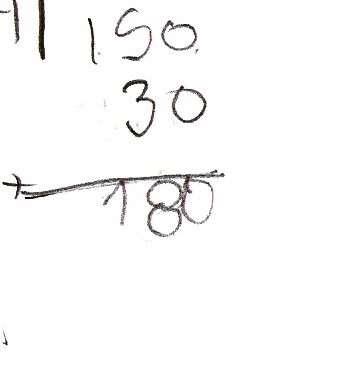 150
30
+
180